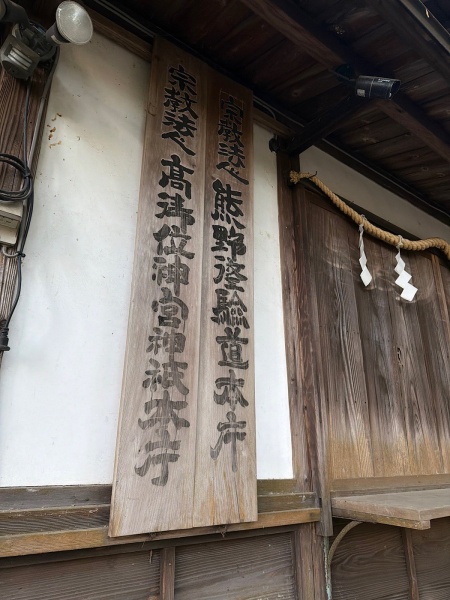 宗教法人 熊野修験道本庁
宗教法人 高御位神宮神祇本庁